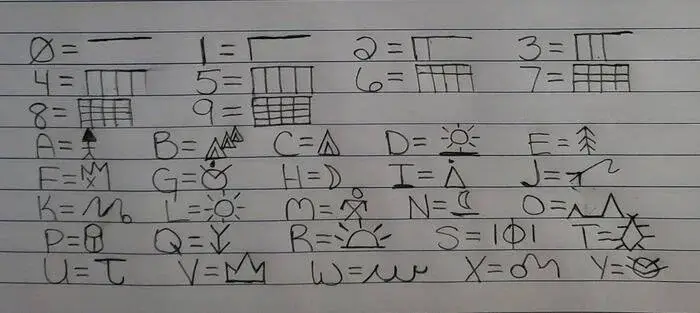 0 = 1 = 2 = 3 =
4 = 5 = 6 = 7 =
8 = 9 =
A = B = C = D = E =
F = G = H = I = J =
K = L = M = N = O =
P = Q = R = S = T =
U = V = W = X = Y =